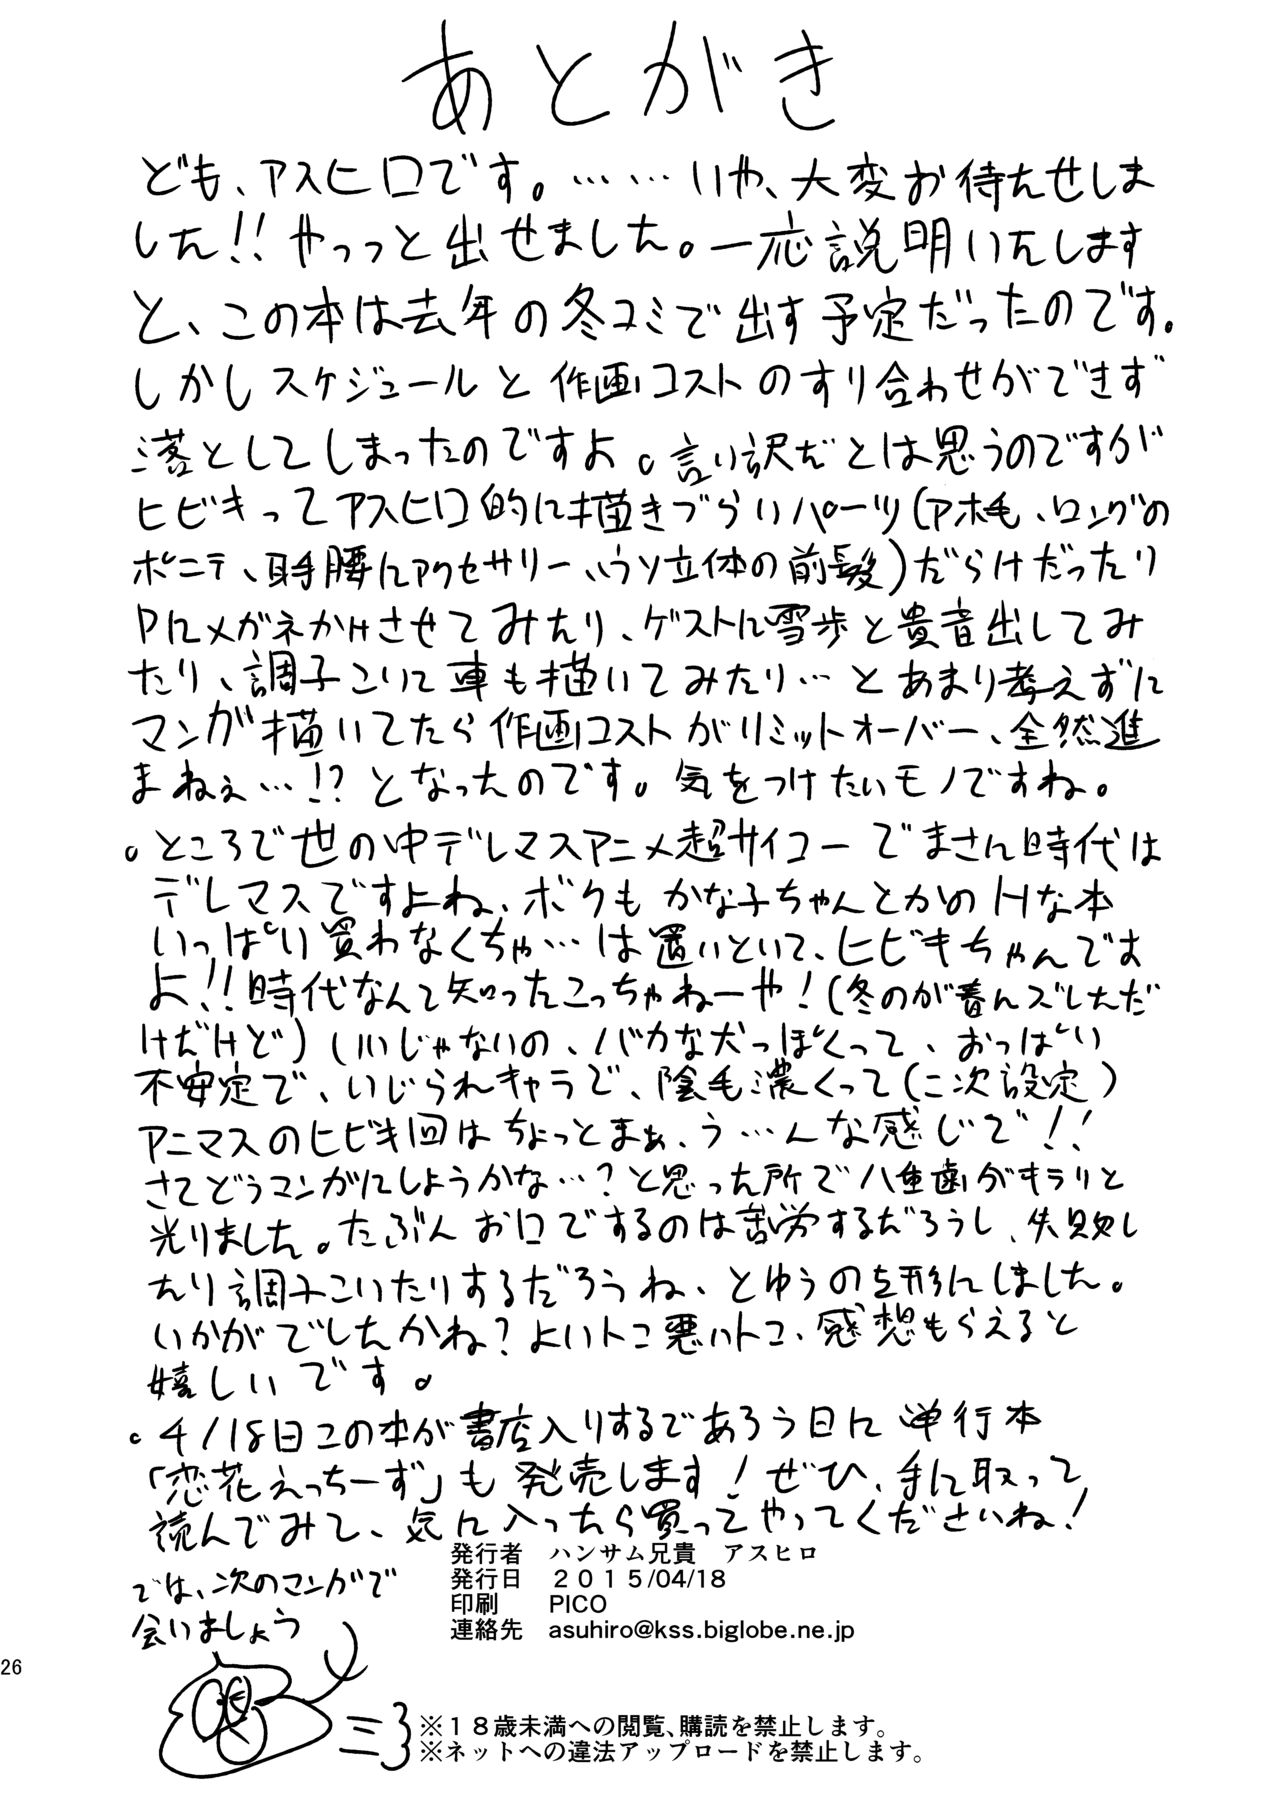 あとがき
ども、アスヒロです。……いや、大変お待たせしま
した!!やっっと出せました。一応説明いたします
と、この本は去年の冬コミで出す予定だったのです。
しかしスケジュールと作画コストのすり合わせができず
落としてしまったのですよ。言い訳だとは思うのですが
ヒビキってアスヒロ的に描きづらいパーツ(アホ毛、ロングの
ポニテ、耳手腰にアクセサリー、ウソ立体の前髪)だらけだったり
Pにメガネかけさせてみたり、ゲストに雪歩と貴音出してみ
たり、調子こいて車も描いてみたり…とあまり考えずに
マンガ描いてたら作画コストがリミットオーバー、全然進
まねぇ…!?となったのです。気をつけたいモノですね。
。ところで世の中デレマスアニメ超サイコーでまさに時代は
デレマスですよね、ボクもかな子ちゃんとかのHな本
いっぱい買わなくちゃ…は置いといて、ヒビキちゃんです
よ!!時代なんて知ったこっちゃねーや!(冬のが春にズレただ
けだけど)いいじゃないの、バカな犬っぽくって、おっぱい
不安定で、いじられキャラで、陰毛濃くって(二次設定)
アニマスのヒビキ回はちょっとまぁ、う…んな感じで!!
さてどうマンガにしようかな…?と思った所で八重歯がキラリと
光りました。たぶんお口でするのは苦労するだろうし、失敗し
たり調子こいたりするだろうね、とゆうのを形にしました。
いかがでしたかね?よいトコ悪いトコ、感想もらえると
嬉しいです。
。4/18日この本が書店入りするであろう日に単行本
「恋花えっちーず」も発売します!ぜひ、手に取って
読んでみて、気に入ったら買ってやってくださいね!
では、次のマンガで
会いましょう
発行者　ハンサム兄貴　アスヒロ
発行日　２０１５/04/18
印刷　PICO
連絡先　asuhiro@kss.biglobe.ne.jp
26
※１８歳未満への閲覧、購読を禁止します。
※ネットへの違法アップロードを禁止します。